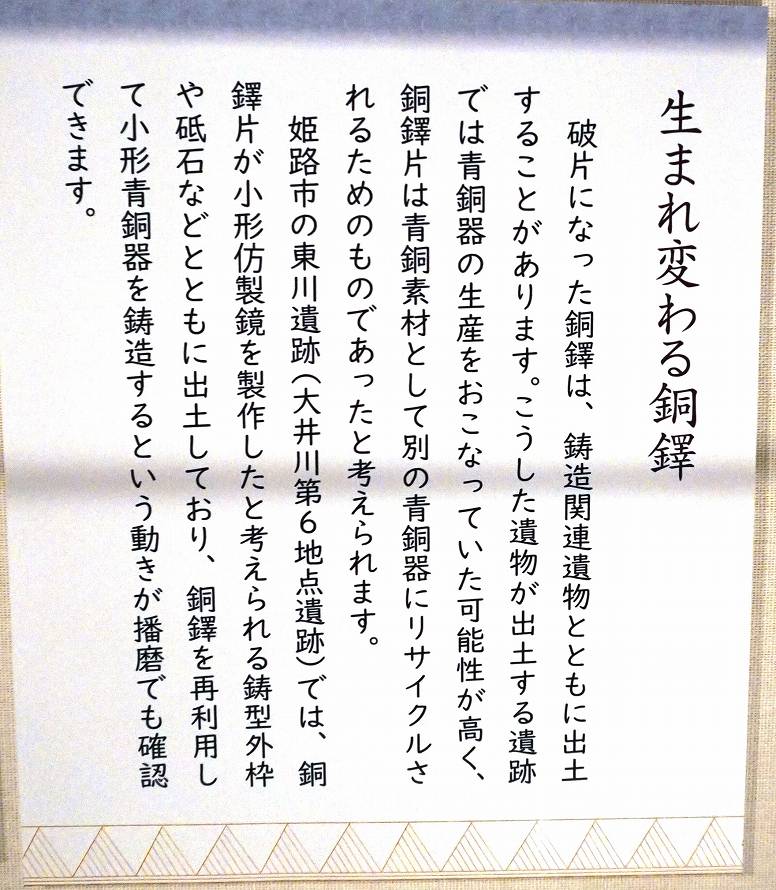 生まれ変わる銅鐸
破片になった銅鐸は、鋳造関連遺物とともに出土
することがあります。こうした遺物が出土する遺跡
では青銅器の生産をおこなっていた可能性が高く、
銅鐸片は青銅素材として別の青銅器にリサイクルさ
れるためのものであったと考えられます。
姫路市の東川遺跡(大井川第6地点遺跡)では、銅
鐸片が小形仿製鏡を製作したと考えられる鋳型外枠
や砥石などとともに出土しており、銅鐸を再利用し
て小形青銅器を鋳造するという動きが播磨でも確認
できます。